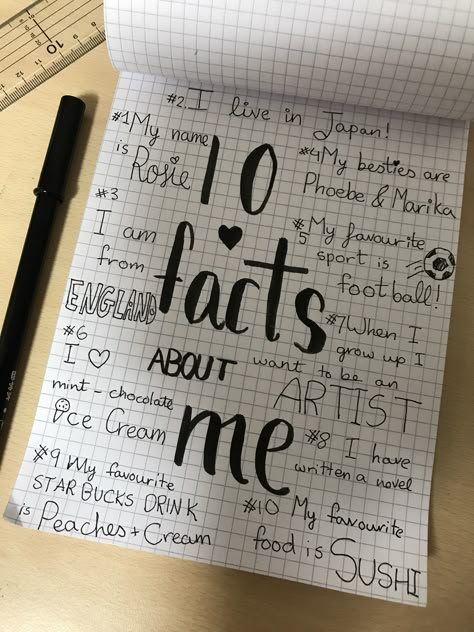 10
facts
ABOUT
me
#1 My name
is
Rosie
#2 I live in Japan!
#3
I am
from
ENGLAND
#4 My besties are
Phoebe & Marika
#5 My favourite
sport is
football!
#6
I ♡
mint-chocolate
ice Cream
#7 When I
grow up I
want to be an
ARTIST
#8 I have
written a novel
#9 My favourite
STARBUCKS DRINK
is Peaches + Cream
#10 My favourite
food is SUSHI
10